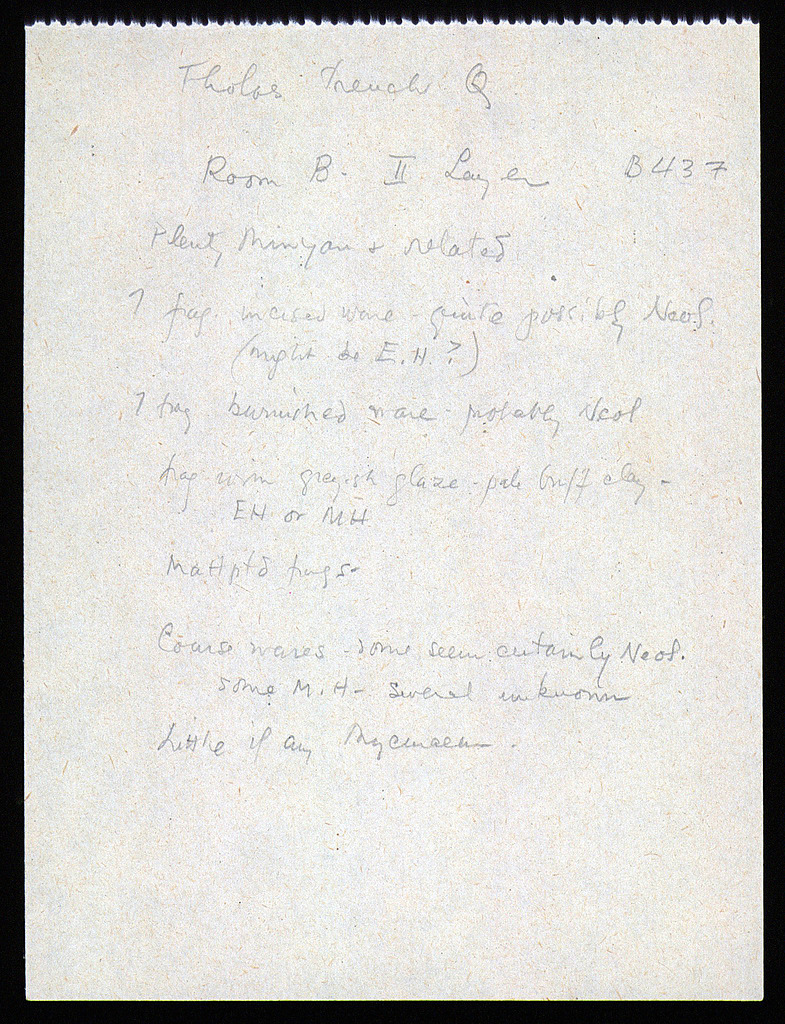 Tholos Trench Q
Room B. II Layer B 437
Plenty Minyan & related
1 frag. incised ware - quite possibly Neol.
(might be E.H.?)
1 frag burnished ware - probably Neol
frag with greyish glaze - pale buff clay -
EH or MH
Mattptd frags-
Coarse wares - some seem certainly Neol.
some M.H- several unknown
Little if any Mycenaean.